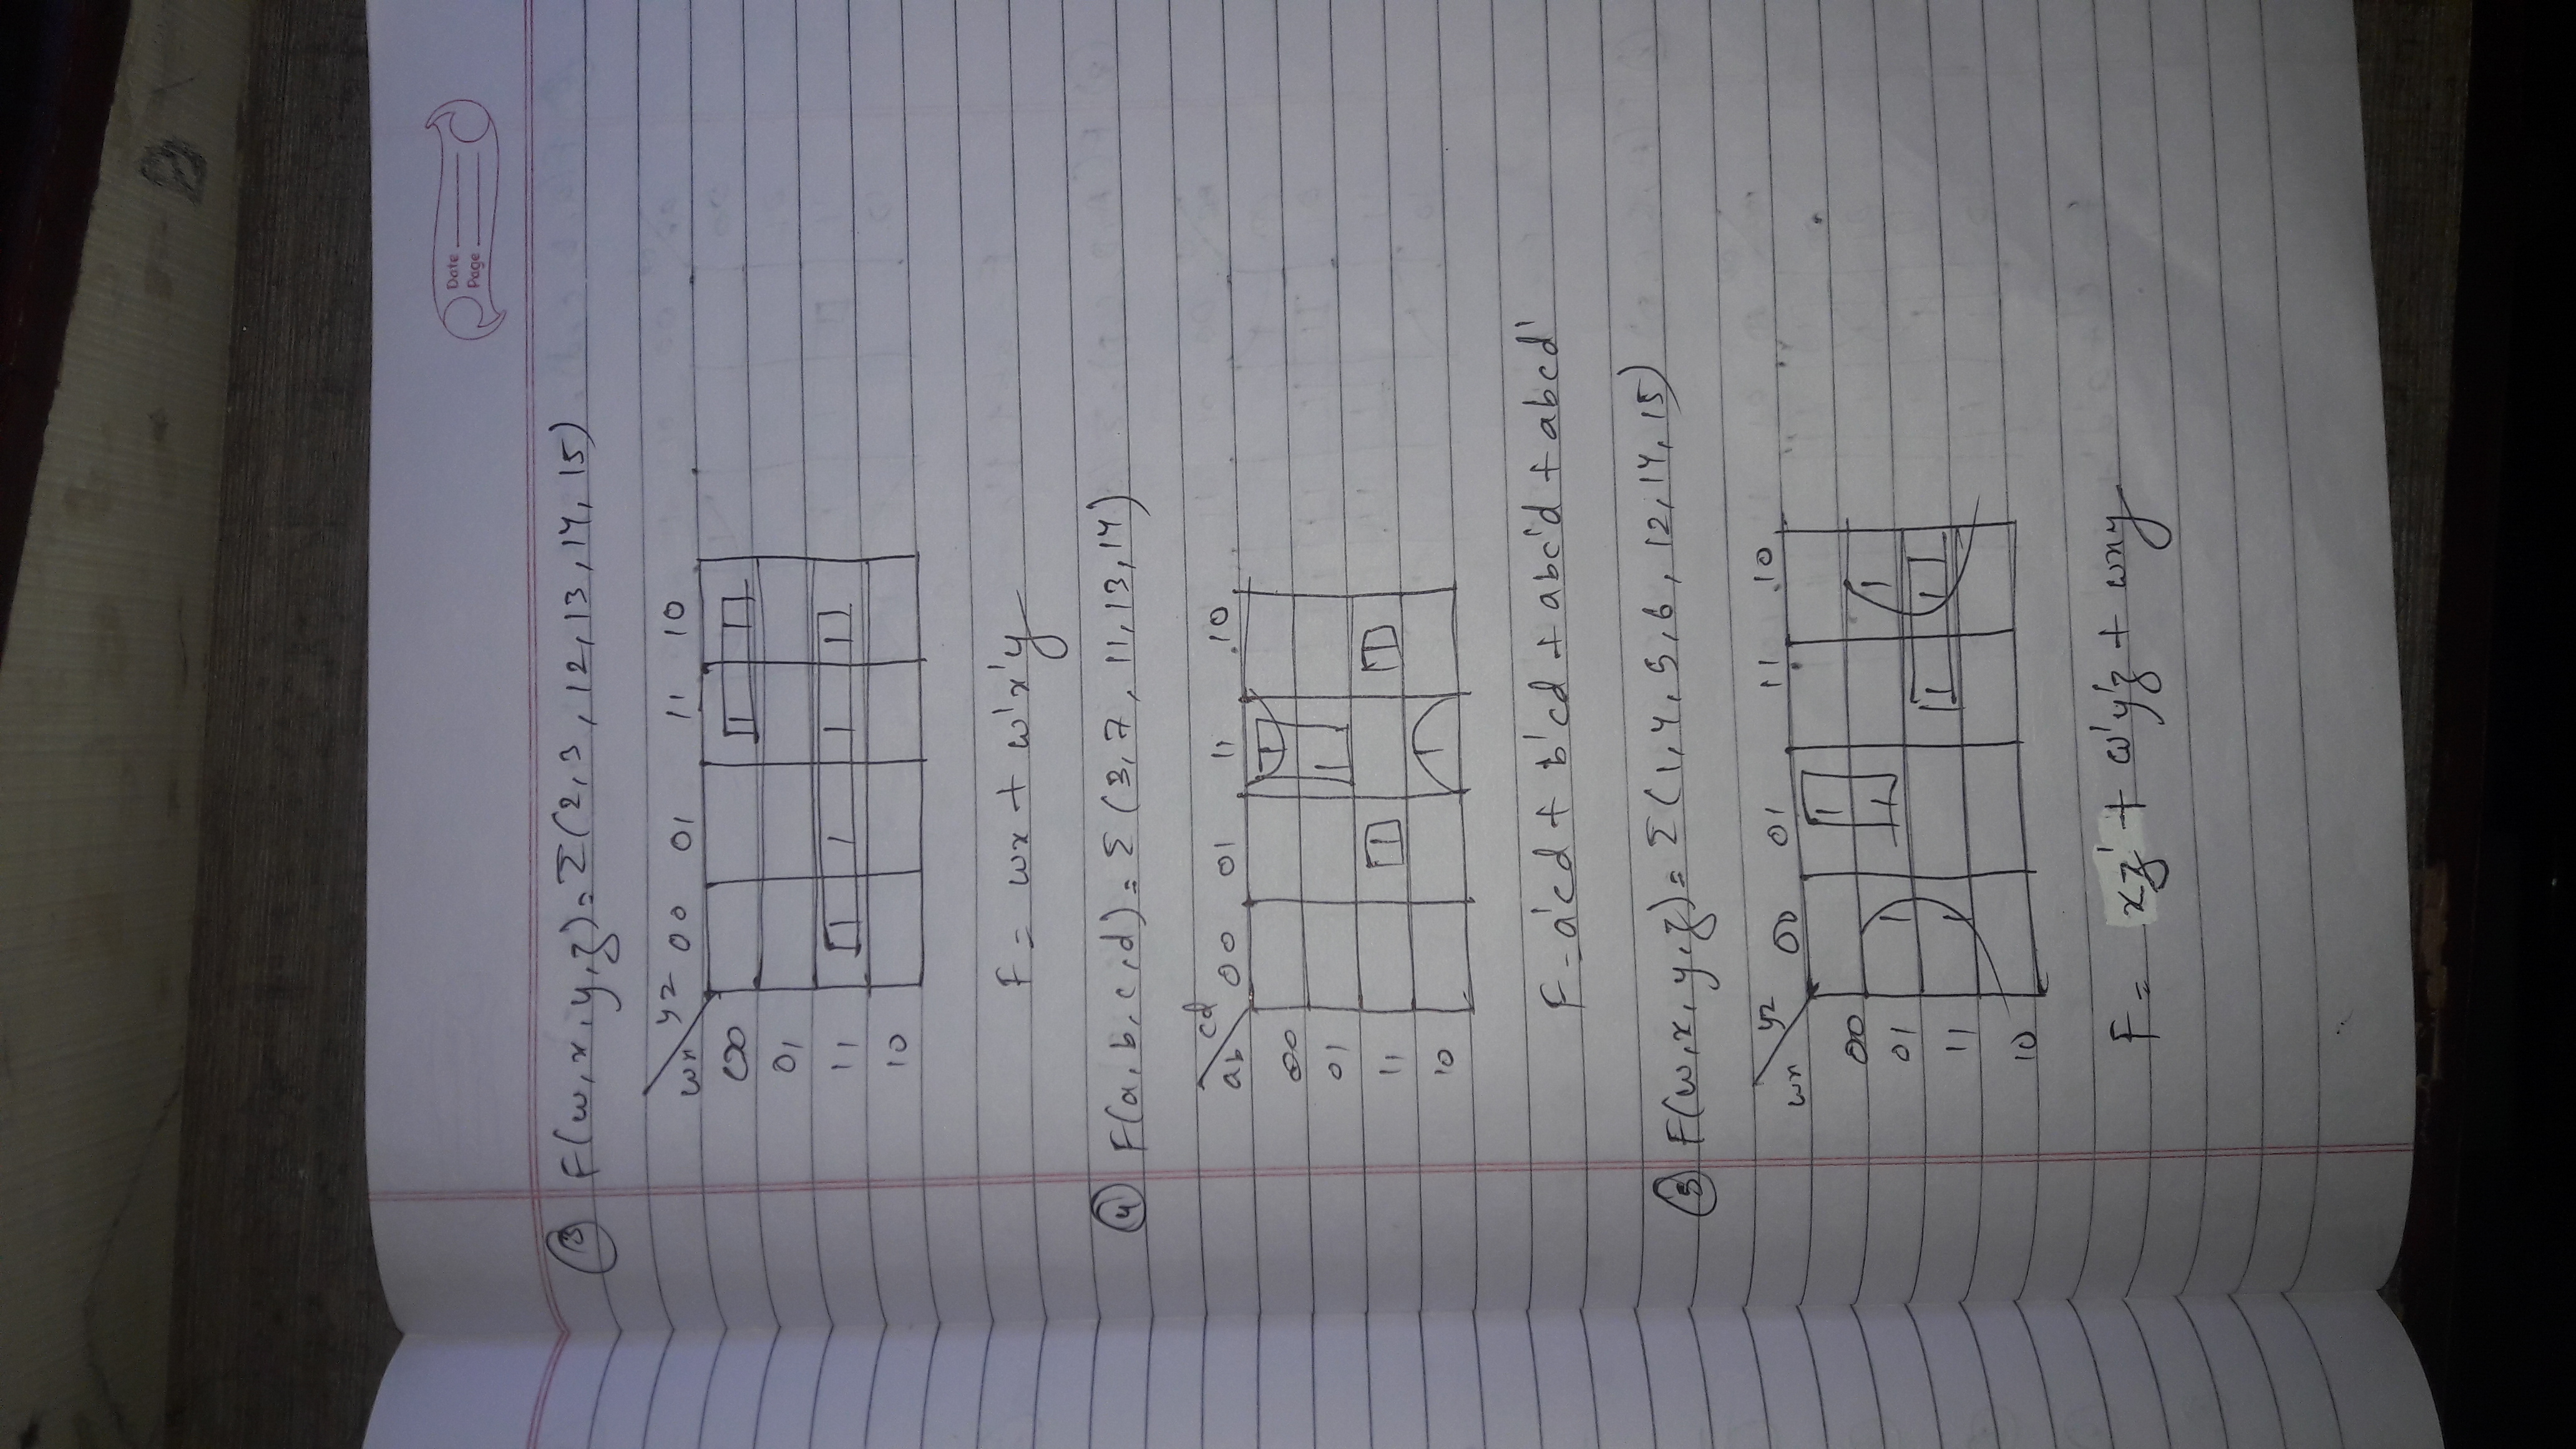 Date
Page
③ F(w,x,y,z) = Σ(2,3,12,13,14,15)
yz 00 01 11 10
wx
00 1 1
01
11 1 1 1 1
10
F = wx + w'x'y
④ F(a,b,c,d) = Σ(3,7,11,13,14)
cd
ab 00 01 11 10
00 1
01 1
11 1 1
10 1
F = a'cd + b'cd + abc'd + abcd'
⑤ F(w,x,y,z) = Σ(1,4,5,6,12,14,15)
yz 00 01 11 10
wx
00 1
01 1 1 1
11 1 1 1
10
F = xz' + w'y'z + wxy